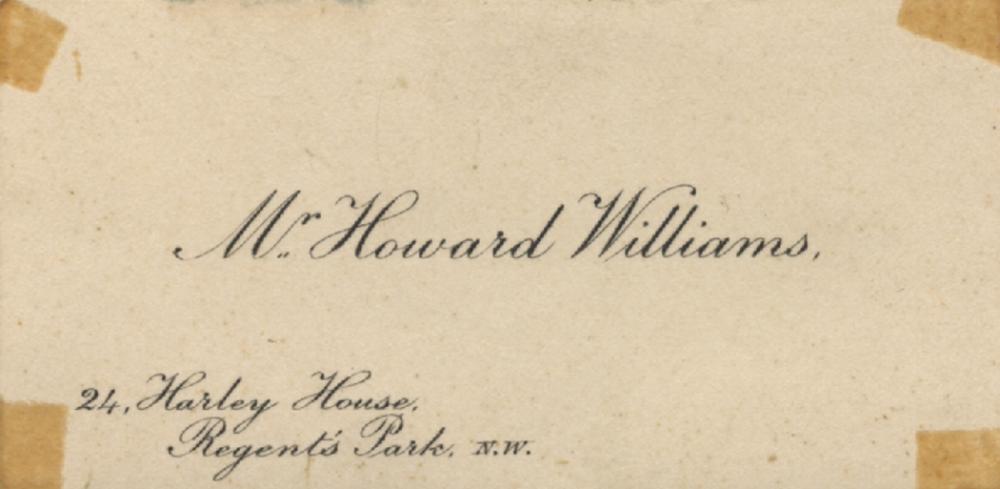 Mr. Howard Williams,
24, Harley House.
Regent's Park. N.W.